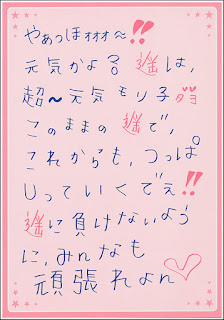 やぁっほォォォ〜!!
元気かよ? 遥は、
超〜元気モリ子
このままの 遥で、
これからも、つっぱ
しっていくでぇ!!
遥に負けないよう
に、みんなも
頑張れよん♡